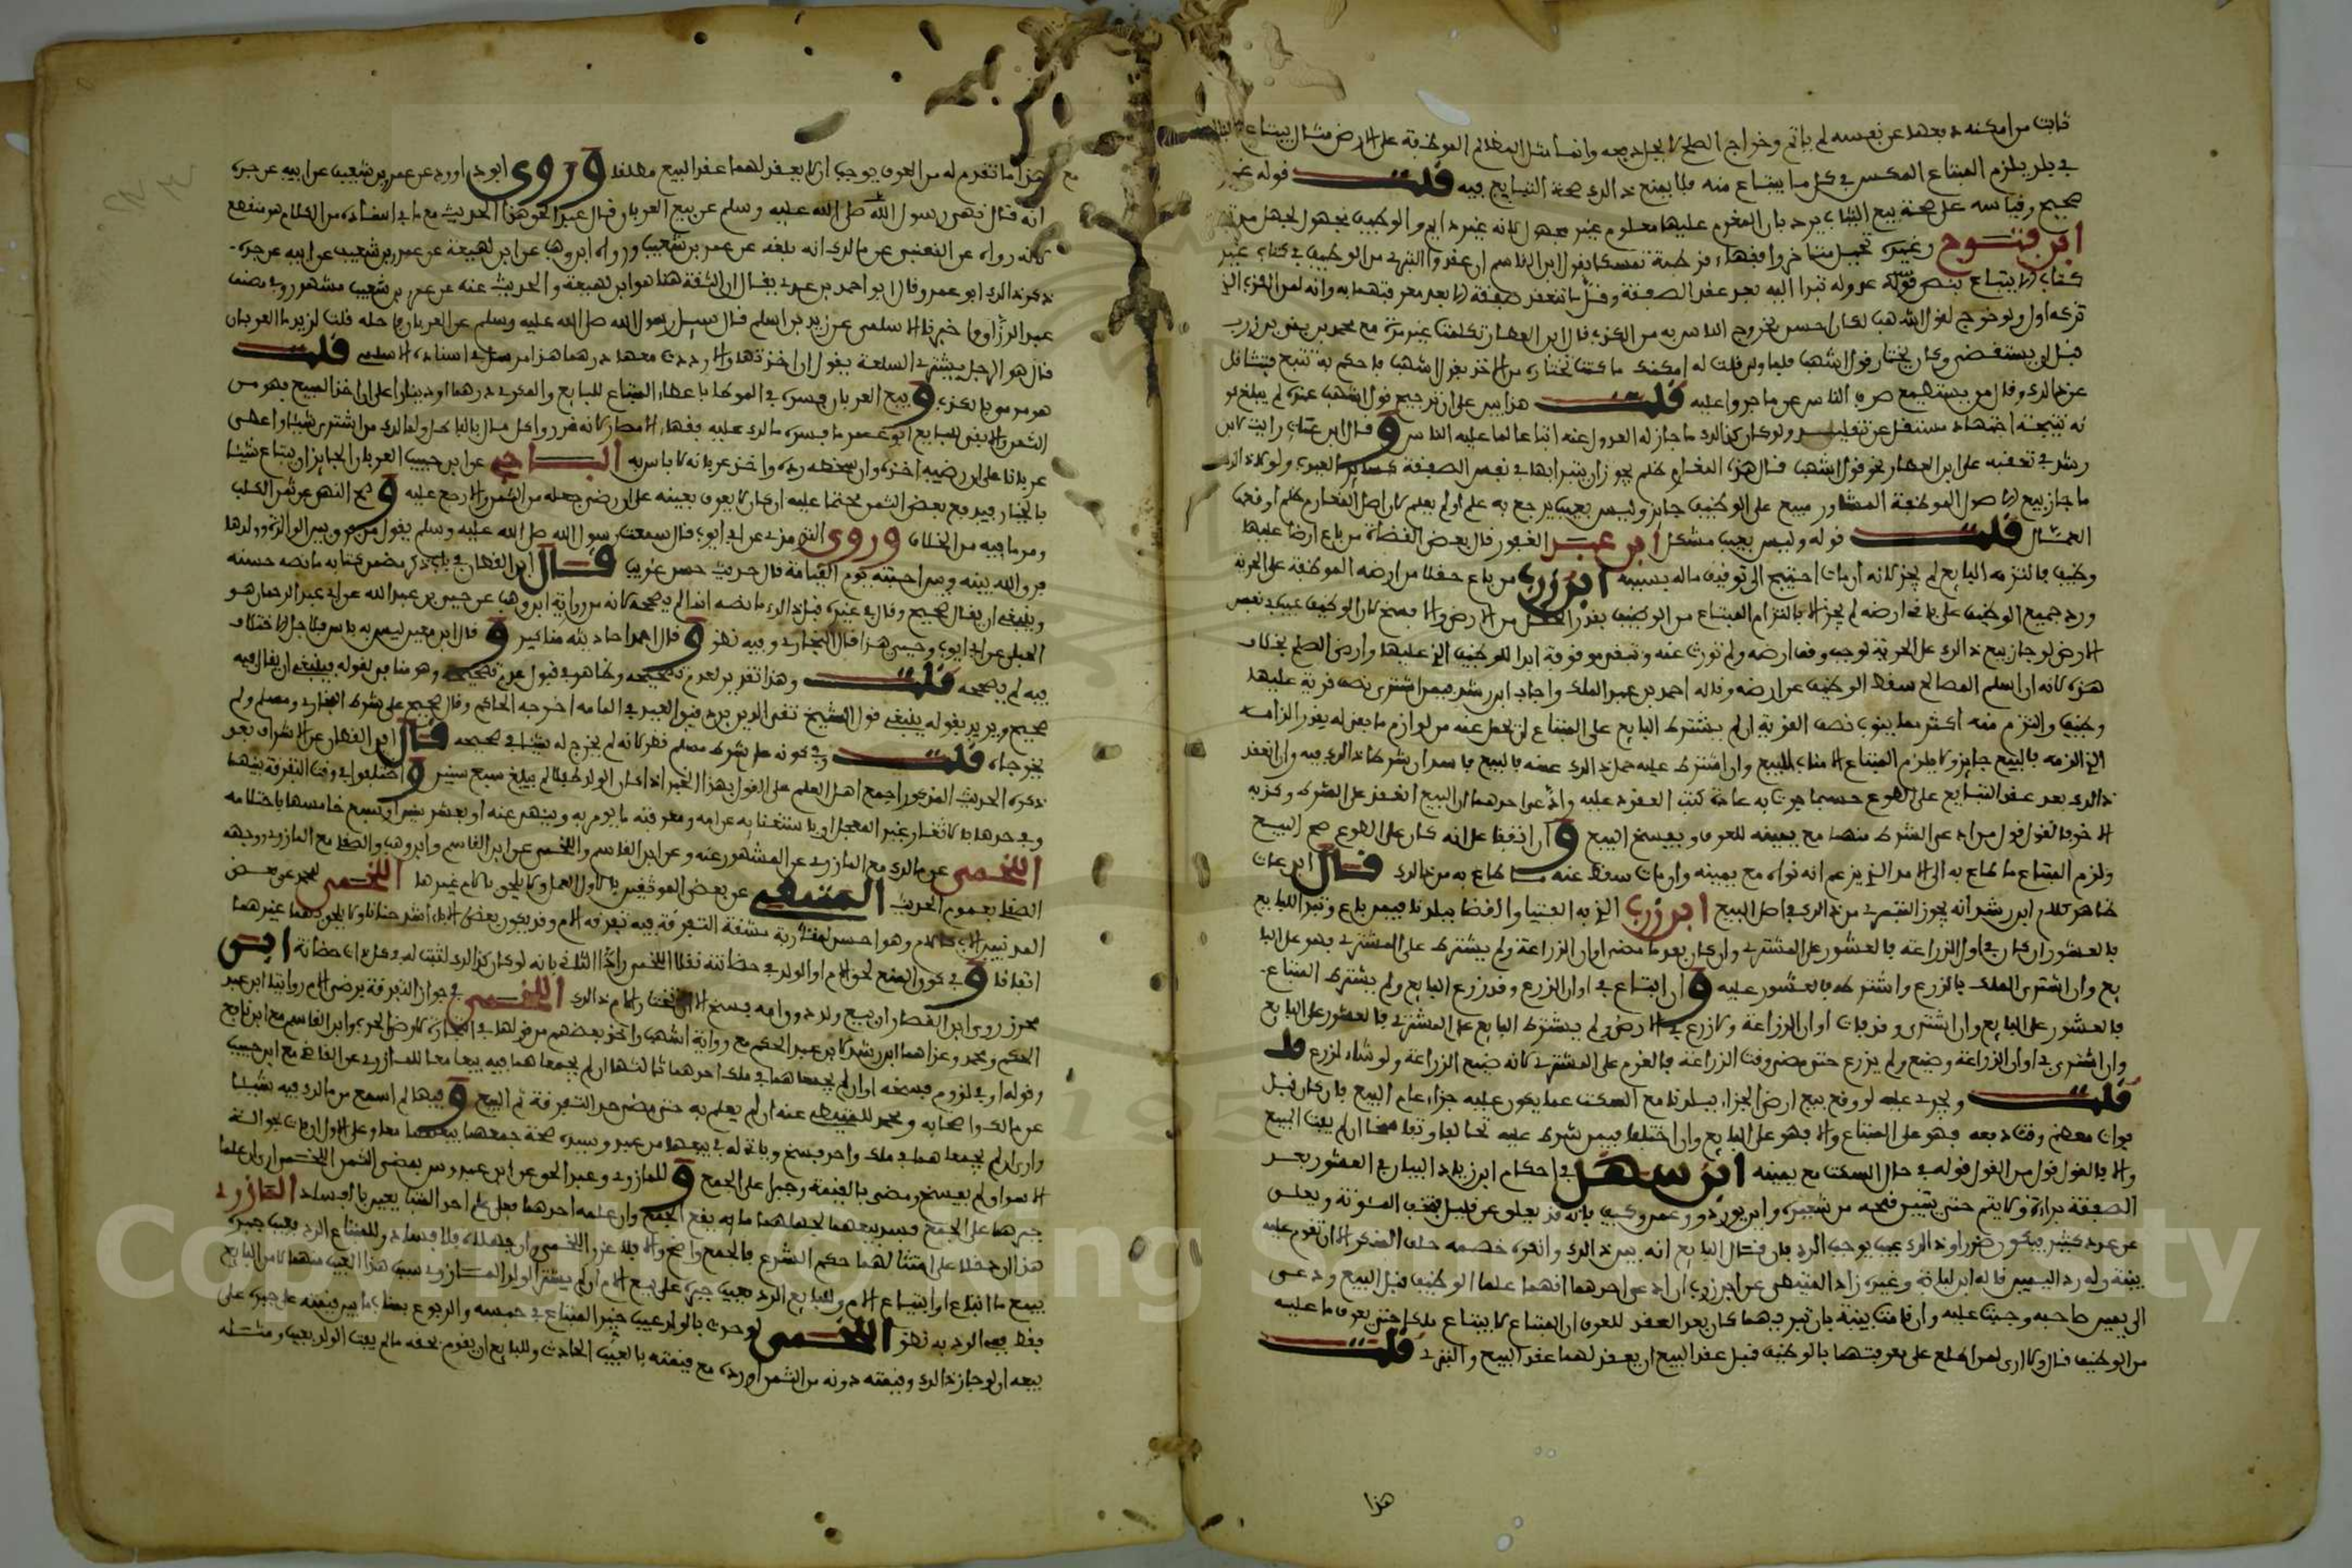 ثابت من امكنه دبعها عن نفسه لم ياثم وخراج الصلح لا يجاد بعه وانما مثل المظالم الموظفة على الارض مثال يبتاع
في بلد يلزم المبتاع المكس في كل ما يبتاع منه فلا يمنع ذالك صحة التبايع فيه قلت قوله غير
صحيح وقياسه على صحة بيع الثياب يرد بان المغرم عليها معلوم غير مجهول لانه غير دايم والوظيف مجهول لجهل مدته
ابن فتوح وغيره تحيل متاخروا فقهاء قرطبة تمسكا بقول ابن القاسم ان عقدوا التبري من الوظيف في كتاب غير
كتاب الابتياع بنص قوله عروله تبرا اليه بعد عقد الصفقة وقل ما تنعقد صفقة الا بعد معرفتهما به وانه لمن الكذب الذي
تركه اولى ولو خرج لقول اشهب لكان احسن لخروج الناس به من الكذب قال ابن العطار تكلمت غير مرة مع محمد بن يبقى بن زرب
قبل ان يستقضى وكان يختار قول اشهب فلما ولي قلت له امكنك ما كنت تختاره من الاخذ بقول اشهب فاحكم به تتبع فتثاقل
عن ذالك وقال من يستطيع صرف الناس عن ما جروا عليه قلت هذا يدل على ان ترجيح قول اشهب عنده لم يبلغ به
به نتيجة اجتهاد مستقل عن تقليد ولو كان كذالك ما جاز له العدول عنه اتباعا لما عليه الناس وقال ابن عتاب رايت لابن
رشد في تعقبه على ابن العطار نحو قول اشهب قال هذه المغارم ظلم يجوز ان يتبرا بها في نفس الصفقة كساير العيوب ولو لا ذالك
ما جاز بيع الاصول الموظفة المشاور مبيع على الوظيف جايز وليس بعيب يرجع به علم او لم يعلم كان اصل المغارم ظلم او فيما
الحشان قلت قوله وليس بعيب مشكل ابن عبد الغفور قال بعض القضاة من باع ارضا عليها
وظيف فالتزمه البايع لم يجز لانه ان مات احتيج الى توقيف ماله بسببه ابن زرب من باع حقلا من ارضه الموظفة على الحرية
ورد جميع الوظيف على باقي ارضه لم يجز الا بالتزام المبتاع من الوظيف بقدر الحقل من الارض والا فسخ لان الوظيف عيب في نفس
الارض لو جاز بيع ذالك على الحرية لوجب وقف ارضه ولم تورث عنه وتبقى موقوفة ابدا للوظيف الذي عليها وارض الصلح بخلاف
هذه لانه ان اسلم المصالح سقط الوظيف عن ارضه وقاله احمد بن عبد الملك واجاب ابن رشد فيمن اشترى نصف قرية عليها
وظيف والتزم منه اكثر مما ينوب نصف القرية ان لم يشترط البايع على المبتاع ان يحمل عنه من لوازم ما بقي له بقدر الزامه
الذي الزمه بالبيع جايز ولا يلزم المبتاع الا مناب المبيع وان اشترط عليه حمل ذالك عنه فالبيع فاسد ان شرطا ذالك فيه وان انعقد
ذالك بعد عقد التبايع على الطوع حسبما جرت به عادة كتب العقود عليه وادعى احدهما ان البيع انعقد على الشرط وكذبه
الاخر فالقول قول من ادعى الشرط منهما مع يمينه للعرف ويفسخ البيع وان اتفقا على انه كان على الطوع صح البيع
ولزم المبتاع ما طاع به الى الامد الذي يزعم انه نواه مع يمينه وان مات سقط عنه ما طاع به من ذالك قال ابن عات
ظاهر كلام ابن رشد انه يجوز التبري من ذالك في اصل البيع ابن زرب الذي به الفتيا والقضا ببلدنا فيمن باع وتبرا للبايع
بالعشور ان كان في اول الزراعة فالعشور على المشتري وان كان بعد ما مضى اوان الزراعة ولم يشترط على المشتري فهو على البا
يع وان اشترى الملك بالزرع واشترطه فالعشور عليه وان ابتاع في اوان الزرع وقد زرع البايع ولم يشترط المبتاع
فالعشور على البايع وان اشترى وقد فات اوان الزراعة ولا زرع في الارض ولم يشترط البايع على المشتري فالعشور على البايع
وان اشترى في اوان الزراعة وضيع ولم يزرع حتى مضى وقت الزراعة فالغرم على المشتري لانه ضيع الزراعة ولو شاء لزرع قا
قلت ويجري عليه لو وقع بيع ارض الجزاء ببلدنا مع السكت عما يكون عليه جزاء عام البيع فان كان قبل
فوات معظم وقت دبعه فهو على المبتاع والا فهو على البايع وان اختلفا فيمن شرط عليه تحالفا وتفاسخا ان لم يفت البيع
والا فالقول قول من القول قوله في حال السكت مع يمينه ابن سهل في احكام ابن زياد البيان في العشور بعد
الصفقة براءة ولا يتم حتى يتبين فهمه من شعير وابن يورد دور وعمر وكيف بانه قد يغلو عن قليل فتخف المئونة ويعلى
عن عدد كثير فيكون ضررا وذالك عيب يوجب الرد فان قال البايع انه بين ذالك وانكره خصمه حلف المنكر الا ان تقوم عليه
بينة وله رد اليمين قاله ابن لبابة وغيره زاد المتيطي عن ابن زرب ان ادعى احدهما انهما علما الوظيف قبل البيع ودعى
الى يمين صاحبه وجبت عليه وان قامت بينة بان تبريهما كان بعد العقد للعرف ان المبتاع لا يبتاع ملكا حتى يعرف ما عليه
من الوظيف قال ولا ارى لمن اطلع على معرفتهما بالوظيف قبل عقد البيع ان يعقد لهما عقد البيع والتبري قلت
هذا
هذا ما تقدم له من العرف يوجب ان لا يعقد لهما عقد البيع مطلقا وروى ابو داوود عن عمرو بن شعيب عن ابيه عن جده
انه قال نهى رسول الله صلى الله عليه وسلم عن بيع العربان قال عبد الحق هذا الحديث مع ما في اسناده من الكلام هو منقطع
لانه رواه عن القعنبي عن مالك انه بلغه عن عمرو بن شعيب ورواه ابن وهب عن ابن لهيعة عن عمرو بن شعيب عن ابيه عن جده
ذكر ذالك ابو عمر وقال ابو احمد بن عدي يقال ان الثقة هنا هو ابن لهيعة والحديث عنه عن عمرو بن شعيب مشهور وفي مصنف
عبد الرزاق اخبرنا الاسلمي عن زيد بن اسلم قال سيل رسول الله صلى الله عليه وسلم عن العربان فاحله قلت لزيد ما العربان
قال هو الرجل يشتري السلعة يقول ان اخذتها والا رددت معها درهما هذا مرسل في اسناده الاسلمي قلت
هو مرمي بالكذب وبيع العربان فسره في الموطا باعطاء المبتاع للبايع والمكري درهما او دينارا على ان اخذ المبيع فهو من
الثمن والا بقي للبايع ابو عمر ما فسره مالك عليه فقهاء الامصار لانه غرر واكل مال بالباطل ولمالك من اشترى شيئا واعطى
عربانا على ان رضيه اخذه وان سخطه رده واخذ عربانه لا باس به الباجي عن ابن حبيب العربان الجايز ان يبتاع شيئا
بالخيار فيدفع بعض الثمن مختما عليه ان كان لا يعرف بعينه على ان رضي جعله من الثمن والا رجع عليه وصح النهي عن ثمن الكلب
ومر ما فيه من الخلاف وروى الترمذي عن ابي ايوب قال سمعت رسول الله صلى الله عليه وسلم يقول من فرق بين الوالدة وولدها
فرق الله بينه وبين احبته يوم القيامة قال حديث حسن غريب قال ابن القطان في باب ذكر مضمن كتابه ما نصه حسنه
وينبغي ان يقال صحيح وقال في غيره قبل ذالك ما نصه انما لم يصححه لانه من رواية ابن وهب عن حيي بن عبد الله عن ابي عبد الرحمان هو
الحبلي عن ابي ايوب وحيي هذا قال البخاري وفيه نظر وقال احمد احاديثه مناكير وقال ابن معين ليس به باس فلاجل الاختلاف
فيه لم يصححه قلت وهذا تقرير لعدم تصحيحه وظاهره قبول عدم تصحيحه وهو مناف لقوله فينبغي ان يقال فيه
صحيح ويريد بقوله ينبغي قول الشيخ تقي الدين بن دقيق العيد في الالمام اخرجه الحاكم وقال صحيح على شرط البخاري ومسلم ولم
يخرجاه قلت وفي كونه على شرط مسلم نظر لانه لم يخرج له شيئا في صحيحه قال ابن القطان عن الاشراف بعد
ذكره الحديث المذكور اجمع اهل العلم على القول بهذا الخبر اذا كان الولد طفلا لم يبلغ سبع سنين واختلفوا في وقت التفرقة بينهما
وفي حدها بالاثغار غير المعجل او باستغنائه عن امه ومعرفته ما يومر به وينهى عنه او بعشر سنين او بسبع خامسها باحتلامه
اللخمي عن مالك مع المازري عن المشهور عنه وعن ابن القاسم واللخمي عن ابن القاسم وابن وهب والصقلي مع المازري ووجهه
الصقلي بعموم الحديث المتيطي عن بعض الموثقين بالاول العمل ولا يلحق بالام غيرها اللخمي لمحمد عن بعض
المدنيين الاب كالام وهو احسن لمقاربة مشقة التفرقة فيه تفرقة الام وقد يكون بعض الاباء اشد حنانا ولا يلحق بهما غيرهما
اتفاقا وفي كون المنع لحق الام او الولد في حضانته نقلا اللخمي راد الثاني بانه لو كان كذالك لثبت له في كل ذات حضانة ابن
محرز روى ابن القصار ان بيع ولد دون امه يفسخ الا ان تختار الام ذالك اللخمي في جواز التفرقة برضى الام روايتا ابن عبد
الحكم ومحمد وعزاهما ابن رشد لابن عبد الحكم مع رواية اشهب واخذ بعضهم من قولها في التجارة لارض الحرب وابن القاسم مع ابن نافع
وقوله او في لزوم فسخه او ان لم يجمعاهما في ملك احدهما ثالثها ان لم يجمعاهما فيه بيعا معا للمازري عن القاضي مع ابن حبيب
عن مالك واصحابه ومحمد للمتيطي عنه ان لم يعلم به حتى مضى حد التفرقة تم البيع وفيها لم اسمع من مالك فيه شيئا
وارى ان لم يجمعاهما في ملك واحد فسخ وياتي له في بيعها من عبد وسيده صحة جمعهما ببيعهما معا وعلى الاول ان فات بحوالة
الاسواق لم يفسخ ومضى بالقيمة وجبرا على الجمع وللمازري وعبد الحق عن ابن عبدوس بعض الثمن اللخمي ان علما
جبرهما على الجمع ففسد بيعهما لجهلهما ما به يقع الجمع وان علمه احدهما فعلى علم احد المتبايعين بالفساد المازري
هذا ان دخلا على امتثالهما حكم الشرع فالجمع واضح والا فلا عذر اللخمي وان جهلاه فلا فساد وللمبتاع الرد بعيب جبره
ببيع ما ابتاع او ابتياع الام وللبايع الرد بعيب جبره على بيع الام ان لم يشتر الولد المازري سبب هذا العيب منهما لا من البايع
فقط ففي الرد به نظر اللخمي لو حدث بالولد عيب خير المبتاع في حبسه والرجوع بمناب ما بين قيمته على جبره على
بيعه ان لو جاز ذالك وقيمته دونه من الثمن اورده مع قيمته بالعيب الحادث وللبايع ان يقوم بحقه ما لم يفت الولد بعيب ومثله
Copyright © King Saud University